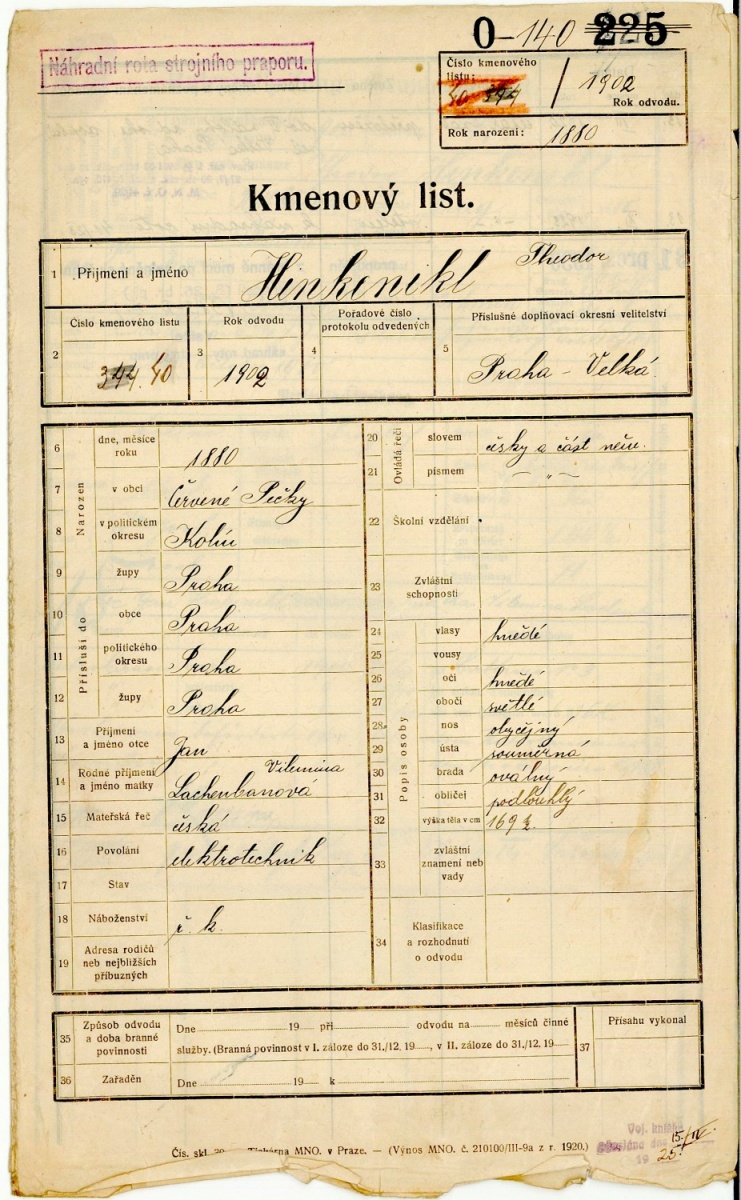 0-140 225
Náhradní rota strojního praporu.
Číslo kmenového
listu:
40 344 / 1902
Rok odvodu.
Rok narození: 1880
Kmenový list.
1 Příjmení a jméno Henkenikl Theodor
2 Číslo kmenového listu 344. 40
3 Rok odvodu 1902
4 Pořadové číslo
protokolu odvedených
5 Příslušné doplňovací okresní velitelství
Praha - Velká
Narozen
6 dne, měsíce
roku 1880
7 v obci Červené Pečky
8 v politickém
okresu Kolín
9 župy Praha
Přísluší do
10 obce Praha
11 politického
okresu Praha
12 župy Praha
13 Příjmení
a jméno otce Jan
14 Rodné příjmení
a jméno matky Vilemína
Lachenbanová
15 Mateřská řeč česká
16 Povolání elektrotechnik
17 Stav
18 Náboženství ř. k.
19 Adresa rodičů
neb nejbližších
příbuzných
Ovládá řeči
20 slovem česky a část něm.
21 písmem — „ —
22 Školní vzdělání
23 Zvláštní
schopnosti
Popis osoby
24 vlasy hnědé
25 vousy
26 oči hnědé
27 obočí světlé
28 nos obyčejný
29 ústa souměrná
30 brada oválný
31 obličej podlouhlý
32 výška těla v cm 169 ½
33 zvláštní
znamení neb
vady
34 Klasifikace
a rozhodnutí
o odvodu
35 Způsob odvodu
a doba branné
povinnosti
Dne 19 při odvodu na měsíců činné
služby. (Branná povinnost v I. záloze do 31./12. 19 , v II. záloze do 31./12. 19
36 Zařaděn Dne 19 k
37 Přísahu vykonal
Čís. skl. Tiskárna MNO. v Praze. — (Výnos MNO. č. 210100/III-9a z r. 1920.)
Voj. knížka
dne 15/IV.
19 25.